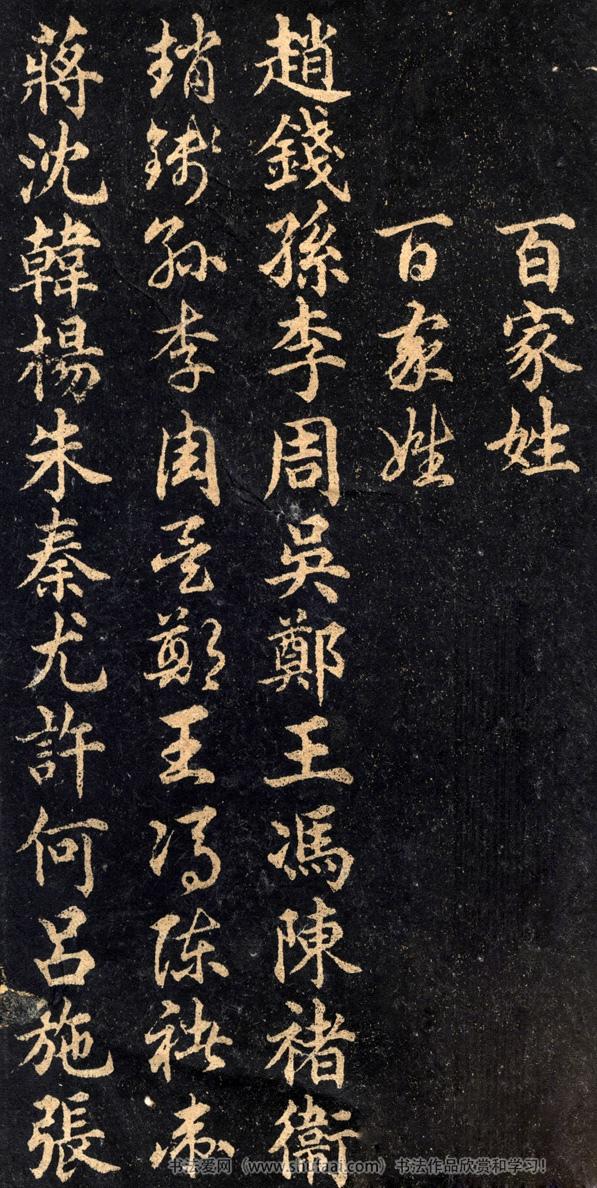 百家姓
百家姓
趙錢孫李周吳鄭王馮陳褚衛
趙錢孫李周吳鄭王馮陳褚衛
蔣沈韓楊朱秦尤許何呂施張
书法爱网（www.shufaai.com）书法作品欣赏和学习！